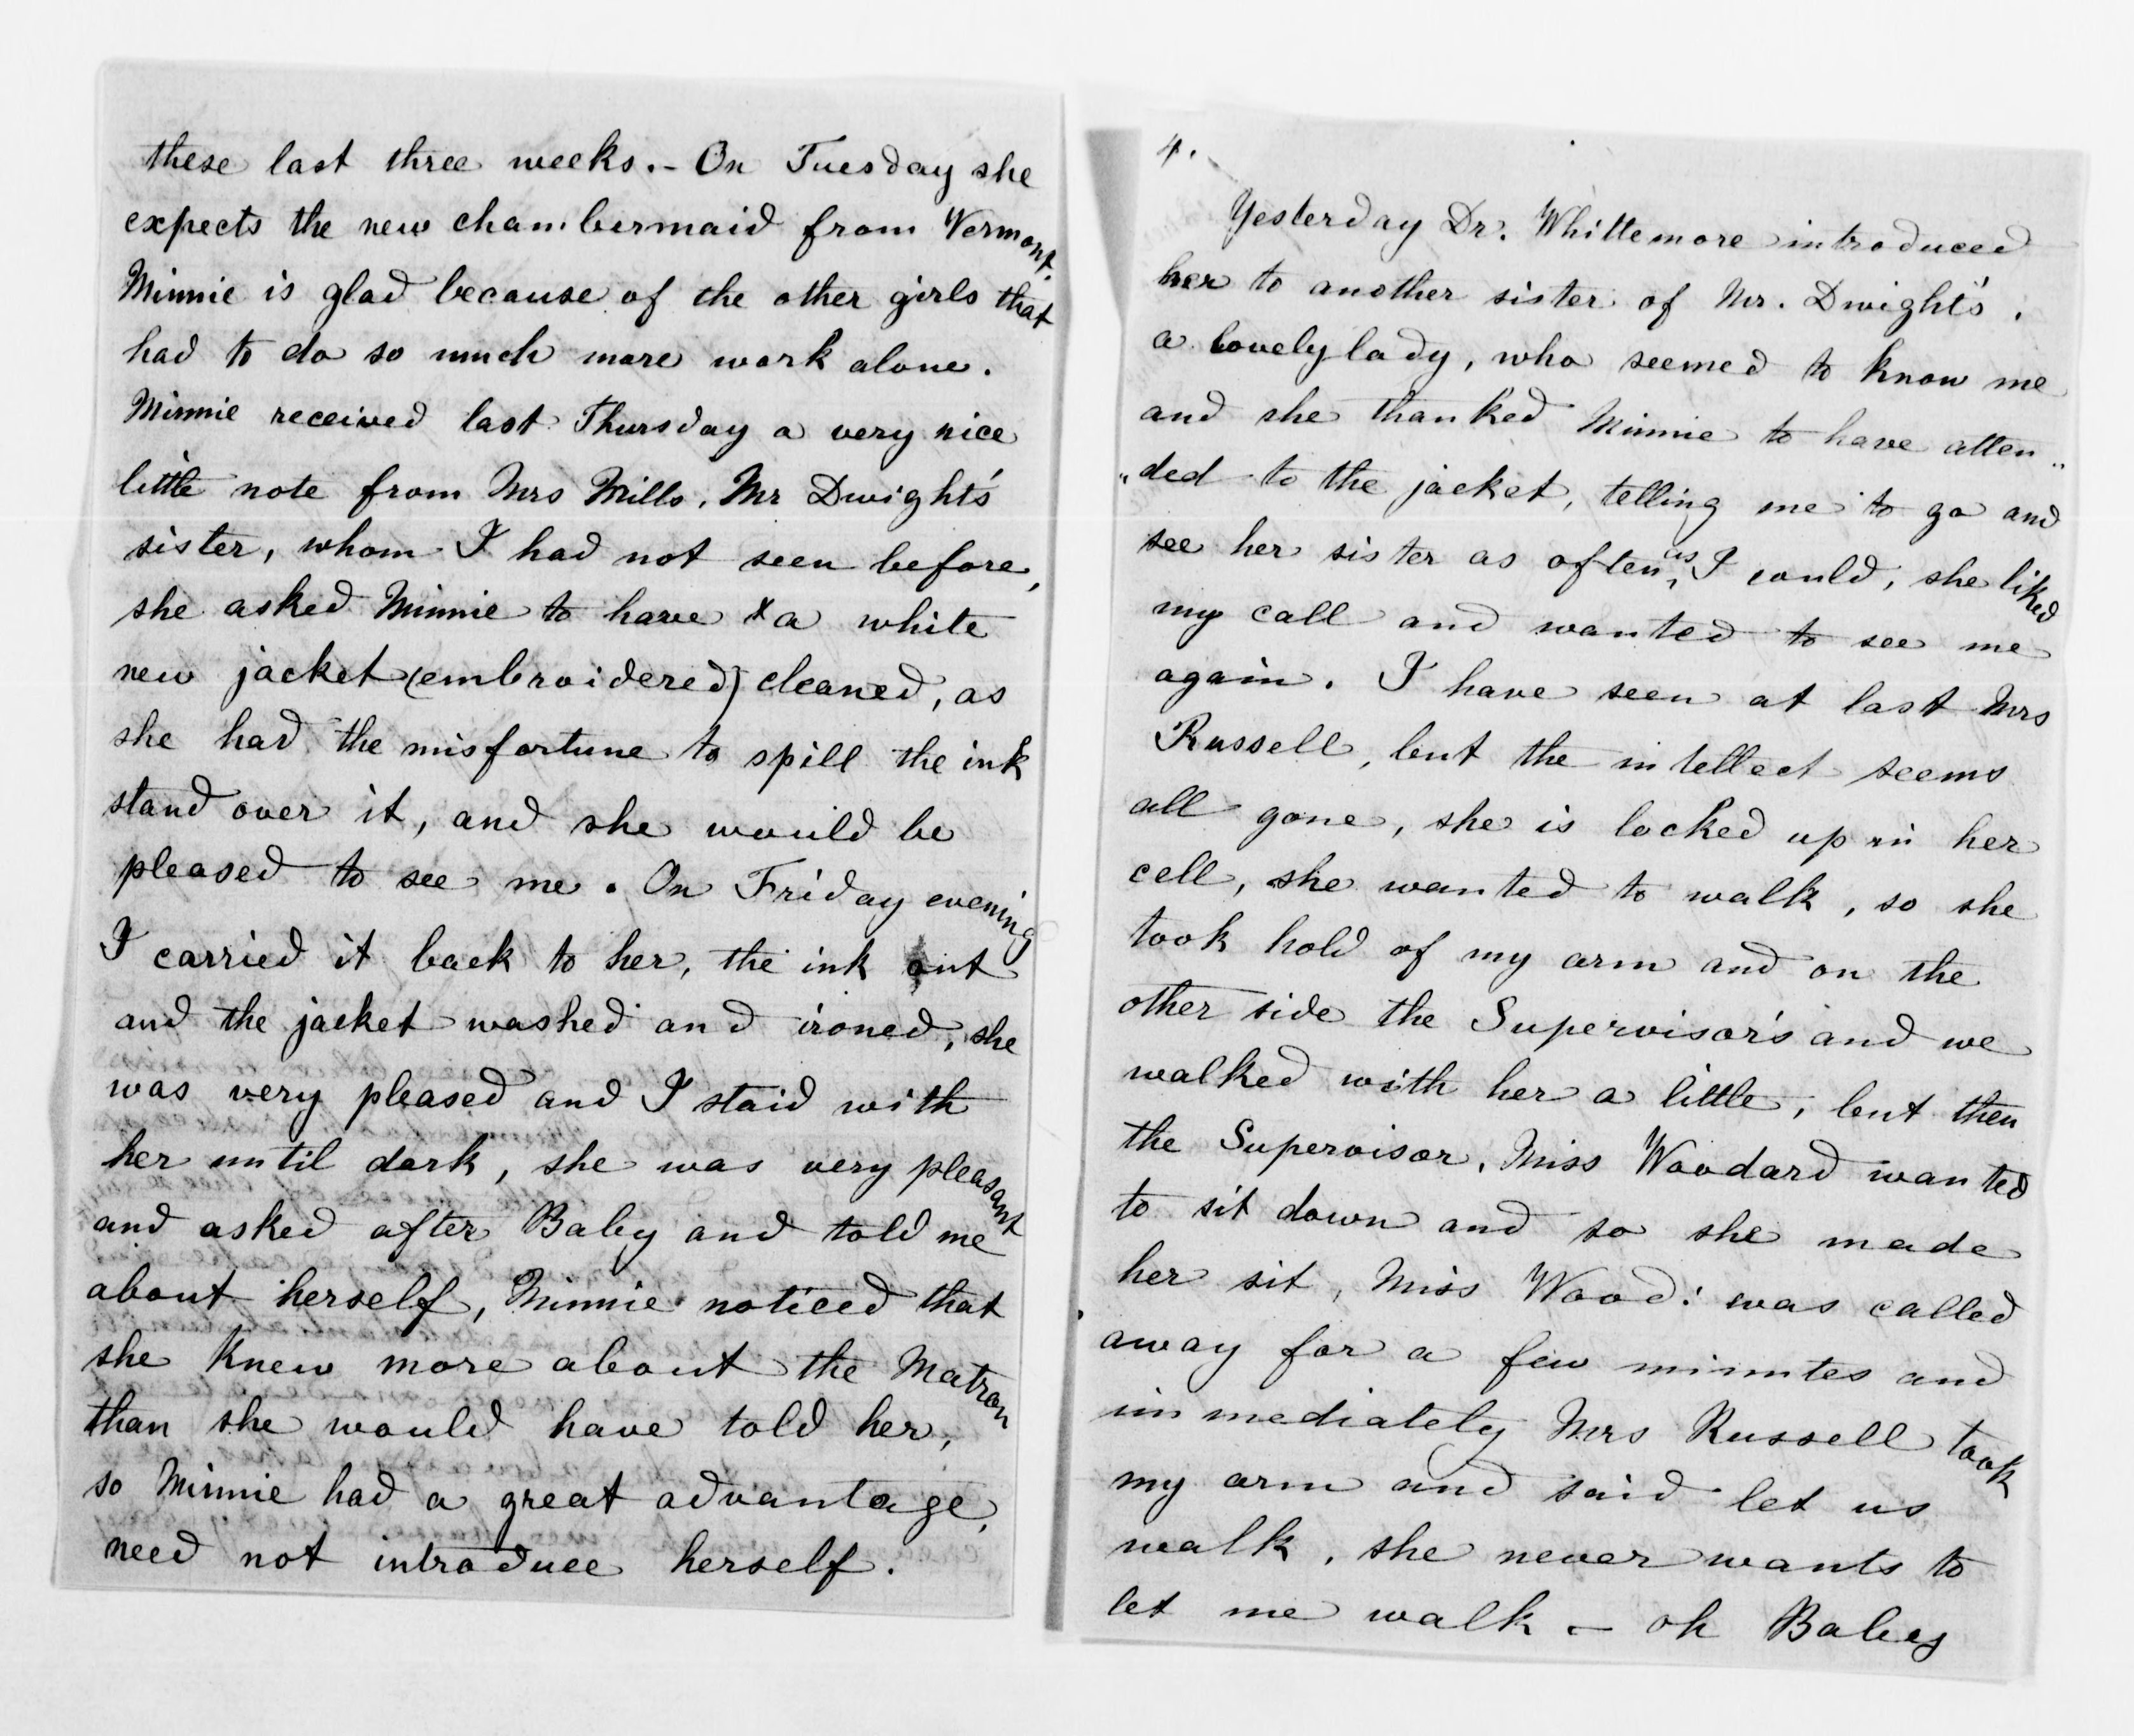 these last three weeks.– On Tuesday she
expects the new chambermaid from Vermont.
Minnie is glad because of the other girls that
had to do so much more work alone.
Minnie received last Thursday a very nice
little note from Mrs Mills, Mr Dwight's
sister, whom I had not seen before,
she asked Minnie to have a white
new jacket (embroidered) cleaned, as
she had the misfortune to spill the ink
stand over it, and she would be
pleased to see me. On Friday evening
I carried it back to her, the ink out
and the jacket washed and ironed, she
was very pleased and I staid with
her until dark, she was very pleasant
and asked after Baby and told me
about herself, Minnie noticed that
she knew more about the Matron
than she would have told her,
so Minnie had a great advantage,
need not introduce herself.
4.
Yesterday Dr. Whittemore introduced
her to another sister of Mr. Dwight's,
a lovely lady, who seemed to know me
and she thanked Minnie to have atten„
„ded to the jacket, telling me to go and
see her sister as often as I could, she liked
my call and wanted to see me
again. I have seen at last Mrs
Russell, but the intellect seems
all gone, she is locked up in her
cell, she wanted to walk, so she
took hold of my arm and on the
other side the Supervisor's and we
walked with her a little, but then
the Supervisor, Miss Woodard wanted
to sit down and so she made
her sit, Miss Wood: was called
away for a few minutes and
immediately Mrs Russell took
my arm and said let us
walk, she never wants to
let me walk – oh Baby